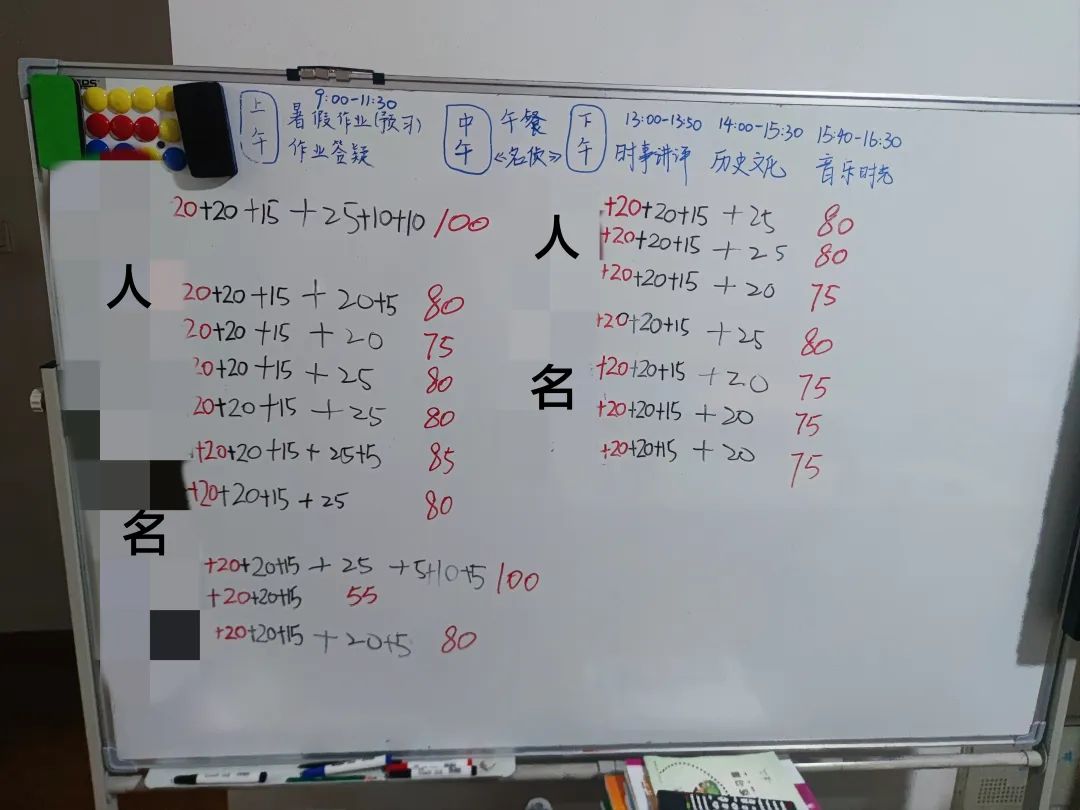 上午 9:00-11:30
暑假作业(预习)
作业答疑
中午 午餐
《名侦》
下午 13:00-13:50 14:00-15:30 15:40-16:30
时事讲评 历史文化 音乐时光
20+20+15+25+10+10 100
20+20+15+20+5 80
20+20+15+20 75
20+20+15+25 80
20+20+15+25 80
+20+20+15+25+5 85
+20+20+15+25 80
+20+20+15+25+5+10+5 100
+20+20+15 55
+20+20+15+20+5 80
人
名
+20+20+15+25 80
+20+20+15+25 80
+20+20+15+20 75
+20+20+15+25 80
+20+20+15+20 75
+20+20+15+20 75
+20+20+15+20 75
人
名